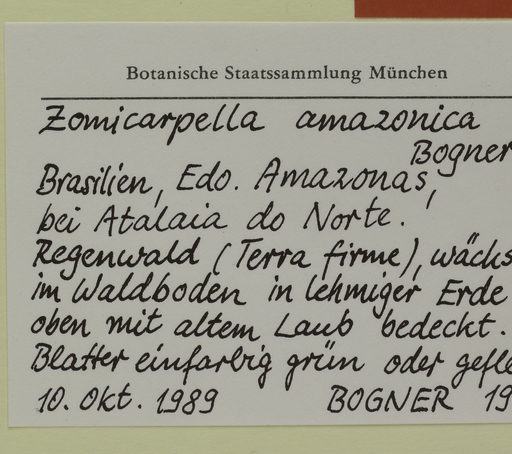 Botanische Staatssammlung München
Zomicarpella amazonica
Bogner
Brasilien, Edo. Amazonas,
bei Atalaia do Norte.
Regenwald (Terra firme), wächs
im Waldboden in lehmiger Erde
oben mit altem Laub bedeckt.
Blätter einfarbig grün oder gefle
10. Okt. 1989 BOGNER 19